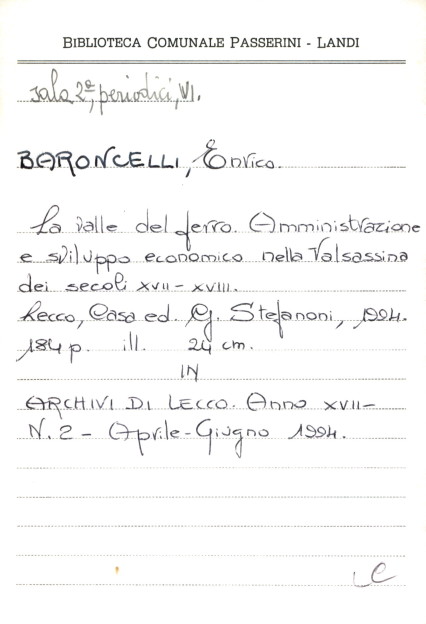 BIBLIOTECA COMUNALE PASSERINI - LANDI
sala 2ª, periodici, VI.
BARONCELLI, Enrico.
La valle del ferro. Amministrazione
e sviluppo economico nella Valsassina
dei secoli XVII - XVIII.
Lecco, Casa ed. G. Stefanoni, 1994.
184 p. ill. 24 cm.
IN
ARCHIVI DI LECCO. Anno XVII-
N. 2 - Aprile-Giugno 1994.